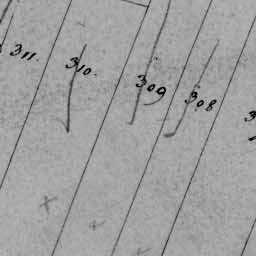 311.
310.
309
308